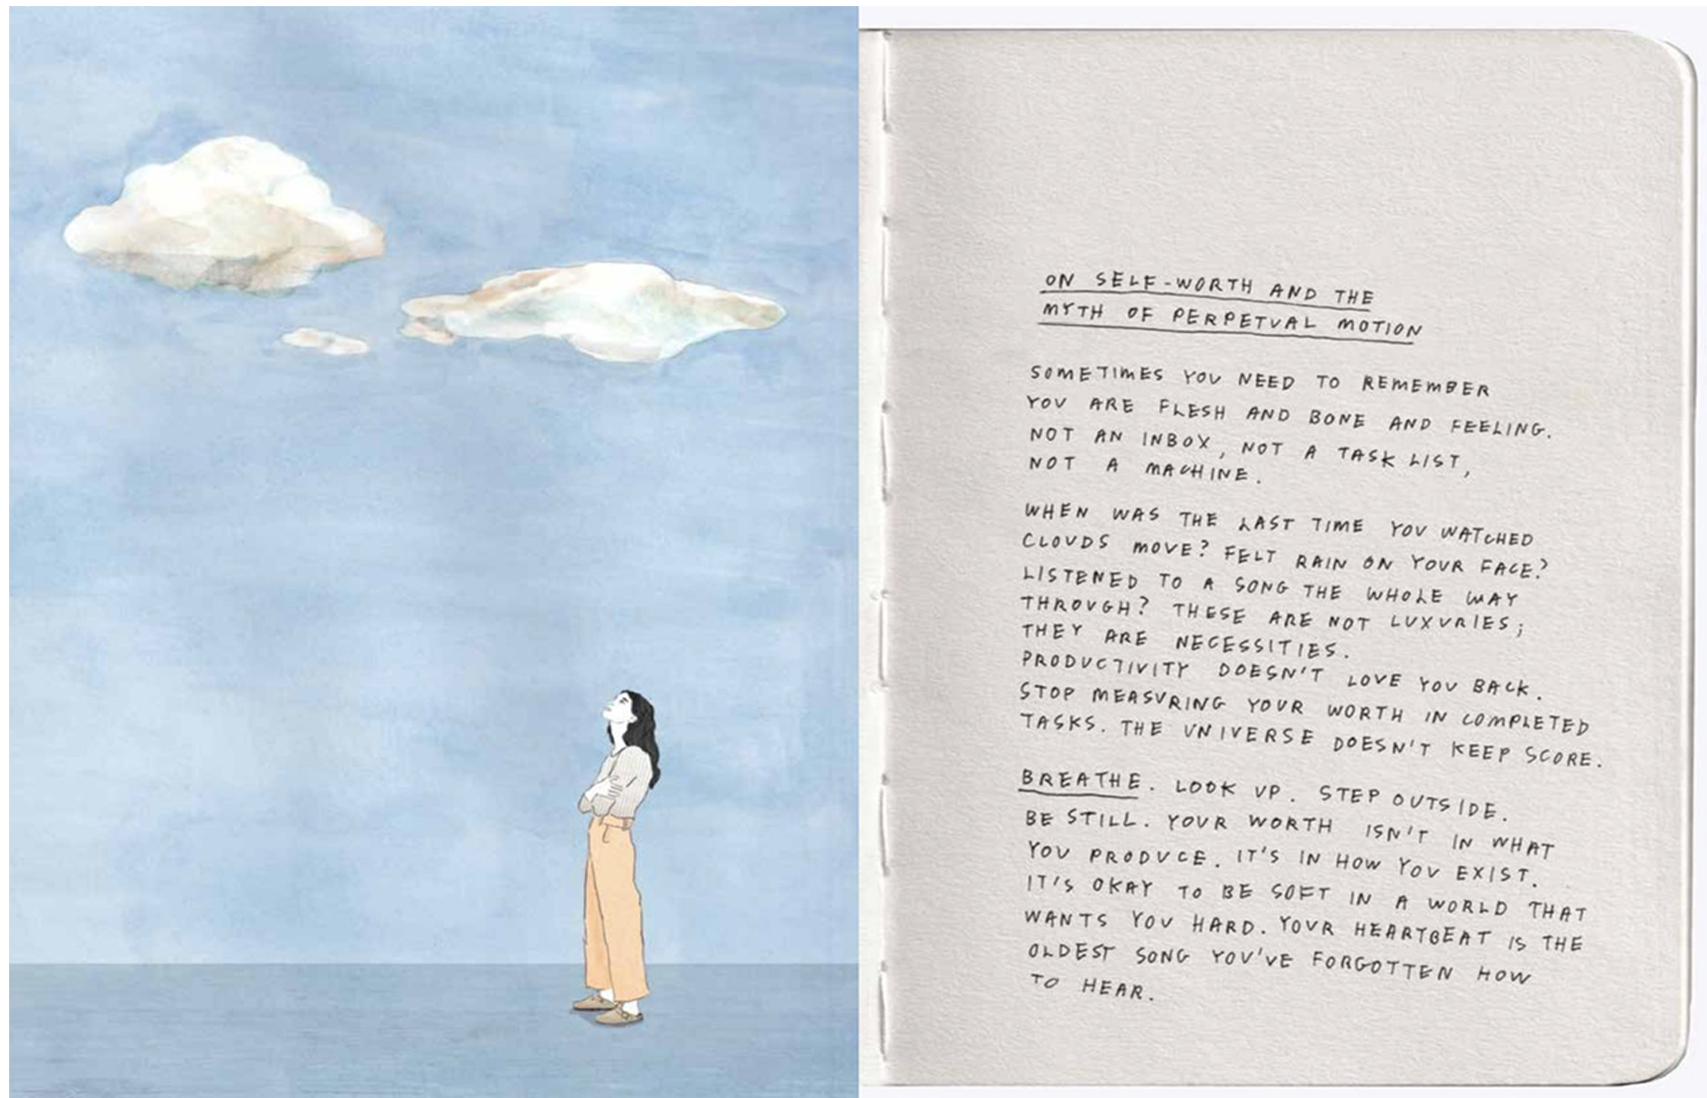 ON SELF-WORTH AND THE
MYTH OF PERPETUAL MOTION
SOMETIMES YOU NEED TO REMEMBER
YOU ARE FLESH AND BONE AND FEELING.
NOT AN INBOX, NOT A TASK LIST,
NOT A MACHINE.
WHEN WAS THE LAST TIME YOU WATCHED
CLOUDS MOVE? FELT RAIN ON YOUR FACE?
LISTENED TO A SONG THE WHOLE WAY
THROUGH? THESE ARE NOT LUXURIES;
THEY ARE NECESSITIES.
PRODUCTIVITY DOESN'T LOVE YOU BACK.
STOP MEASURING YOUR WORTH IN COMPLETED
TASKS. THE UNIVERSE DOESN'T KEEP SCORE.
BREATHE. LOOK UP. STEP OUTSIDE.
BE STILL. YOUR WORTH ISN'T IN WHAT
YOU PRODUCE. IT'S IN HOW YOU EXIST.
IT'S OKAY TO BE SOFT IN A WORLD THAT
WANTS YOU HARD. YOUR HEARTBEAT IS THE
OLDEST SONG YOU'VE FORGOTTEN HOW
TO HEAR.